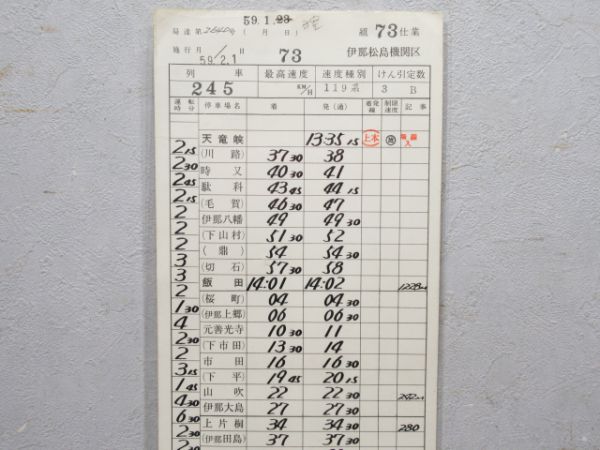 59.1.23
局達第2640号 (月日) 組 73 仕業
施行 月 日 59/2.1 73 伊那松島機関区
列車 最高速度 速度種別 けん引定数
245 KM/H 119系 3 B
運転時分 停車場名 着 発(通) 着発線 制限速度 記事
天竜峡 13 35 15 上本
2 15 (川路) 37 30 38
2 30 時又 40 30 41
2 45 駄科 43 45 44 15
2 15 (毛賀) 46 30 47
2 伊那八幡 49 49 30
2 (下山村) 51 30 52
2 (鼎) 54 54 30
3 (切石) 57 30 58
3 飯田 14:01 14:02
2 (桜町) 04 04 30
1 30 (伊那上郷) 06 06 30
4 元善光寺 10 30 11
2 30 (下市田) 13 30 14
2 市田 16 16 30
3 15 (下平) 19 45 20 15
1 45 山吹 22 22 30
4 30 伊那大島 27 27 30
6 30 上片桐 34 34 30 280
2 30 (伊那田島) 37 37 30
2 30